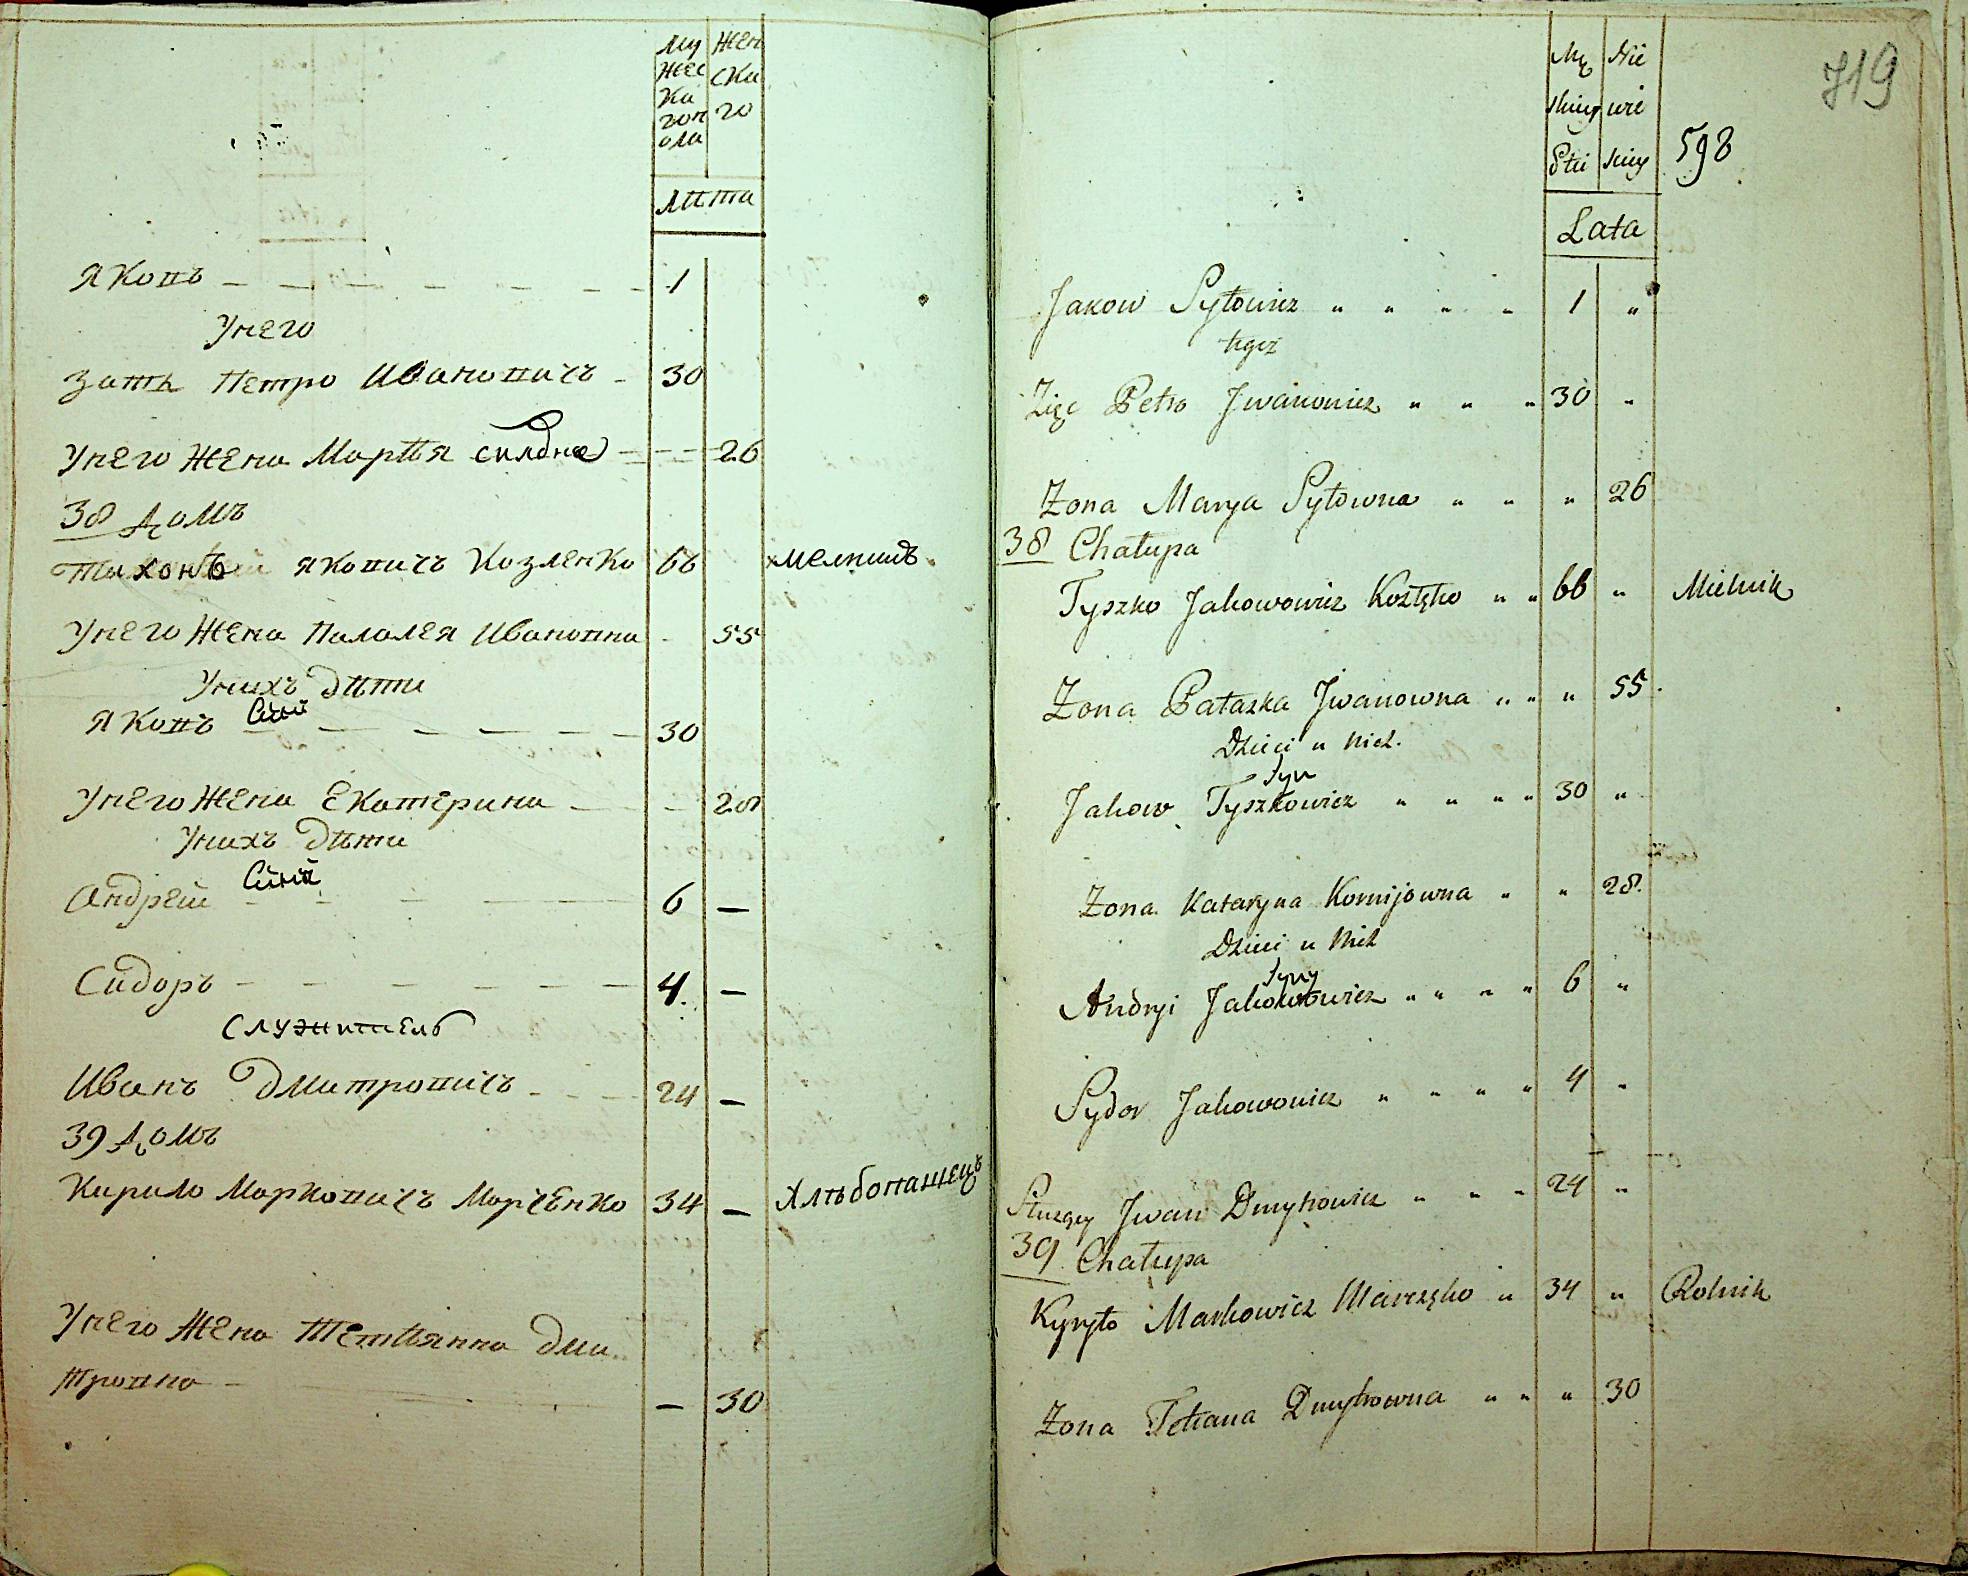 Му Жен
жес ска
ка го
гоп
ола
Лѣта
Якопъ 1
Унего
зять Петро Ивановичъ 30
Унего жена Марѣя 26
38 домъ
Тихонъ Якопичъ Козленко 66 мелникъ
Унего жена Палалея Иванопна 55
Унихъ дѣти
Якопъ Сынъ 30
Унего жена Екатерина 28
Унихъ дѣти
Сыны
Андрей 6 —
Сидоръ 4 —
Служитель
Иванъ Дмитропичъ 24 —
39 домъ
Кирило Маркопичъ Марченко 34 — Хлѣбопашецъ
Унего жена Тетѣянна Дми
тропна — 30
719
598
Mę Nie
skiey wie
Płci skiey
Lata
Jakow Sytowicz " " " " 1 "
tegoż
Zięc Petro Jwanowicz " " " 30 "
Żona Marya Sytowna " " " 26
38 Chałupa
Tyszko Jakowowicz Kozłęko " " 66 " Mielnik
Żona Pałaszka Jwanowna " " " 55
Dzieci u nich.
Syn
Jakow Tyszkowicz " " " " 30 "
Żona Kataryna Kornijowna " " 28.
Dzieci u nich
Syny
Andryi Jakowowicz " " " " 6 "
Sydor Jakowowicz " " " " 4 "
Służący Jwan Dmytrowicz " " " 24 "
39 Chałupa
Kyryło Markowicz Marczęko " 34 " Rolnik
Żona Tetiana Dmytrowna " " " 30